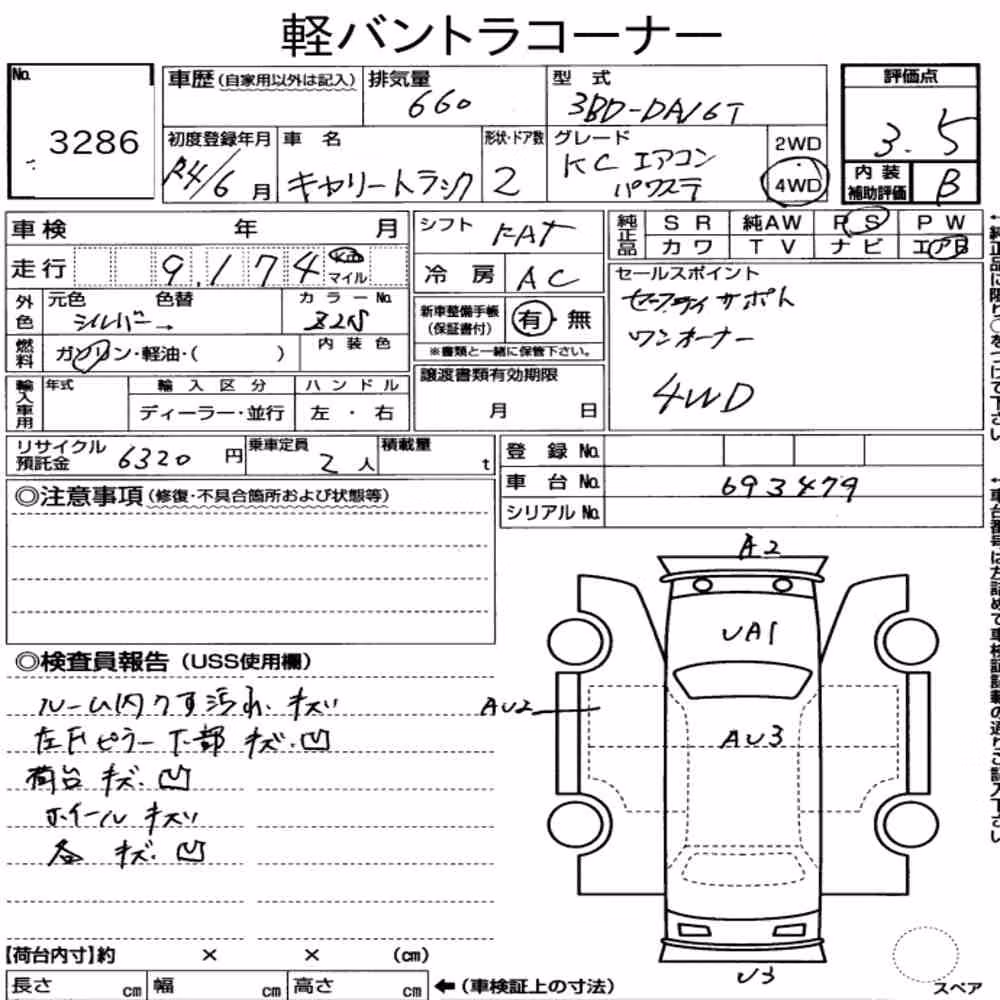 軽バントラコーナー
No.
3286
車歴(自家用以外は記入)
排気量
660
型式
3BD-DA16T
評価点
3.5
初度登録年月
R4/6月
車名
キャリートラック
形状・ドア数
2
グレード
KC エアコン
パワステ
2WD
4WD
内装
補助評価
B
車検 年 月
シフト
FAT
純正品
SR 純AW PS PW
カワ TV ナビ エアB
走行
9,174 km
マイル
冷房
AC
セールスポイント
セーフティサポート
ワンオーナー
4WD
外色
元色 色替
シルバー→
カラーNo.
Z2S
新車整備手帳
(保証書付)
有・無
※書類と一緒に保管下さい。
燃料
ガソリン・軽油・( )
内装色
譲渡書類有効期限
月 日
輸入車用
年式
輸入区分
ディーラー・並行
ハンドル
左・右
リサイクル
預託金
6320円
乗車定員
2人
積載量
t
登録No.
車台No.
693479
シリアルNo.
◎注意事項(修復・不具合箇所および状態等)
◎検査員報告(USS使用欄)
ルーム内クすミ汚れ.キズ
左Fピラー下部 キズ.凹
荷台 キズ.凹
ホイール キズ
各 キズ.凹
A2
UA1
AU2
AU3
U3
【荷台内寸】約 × × (cm)
長さ cm 幅 cm 高さ cm
←(車検証上の寸法)
スペア